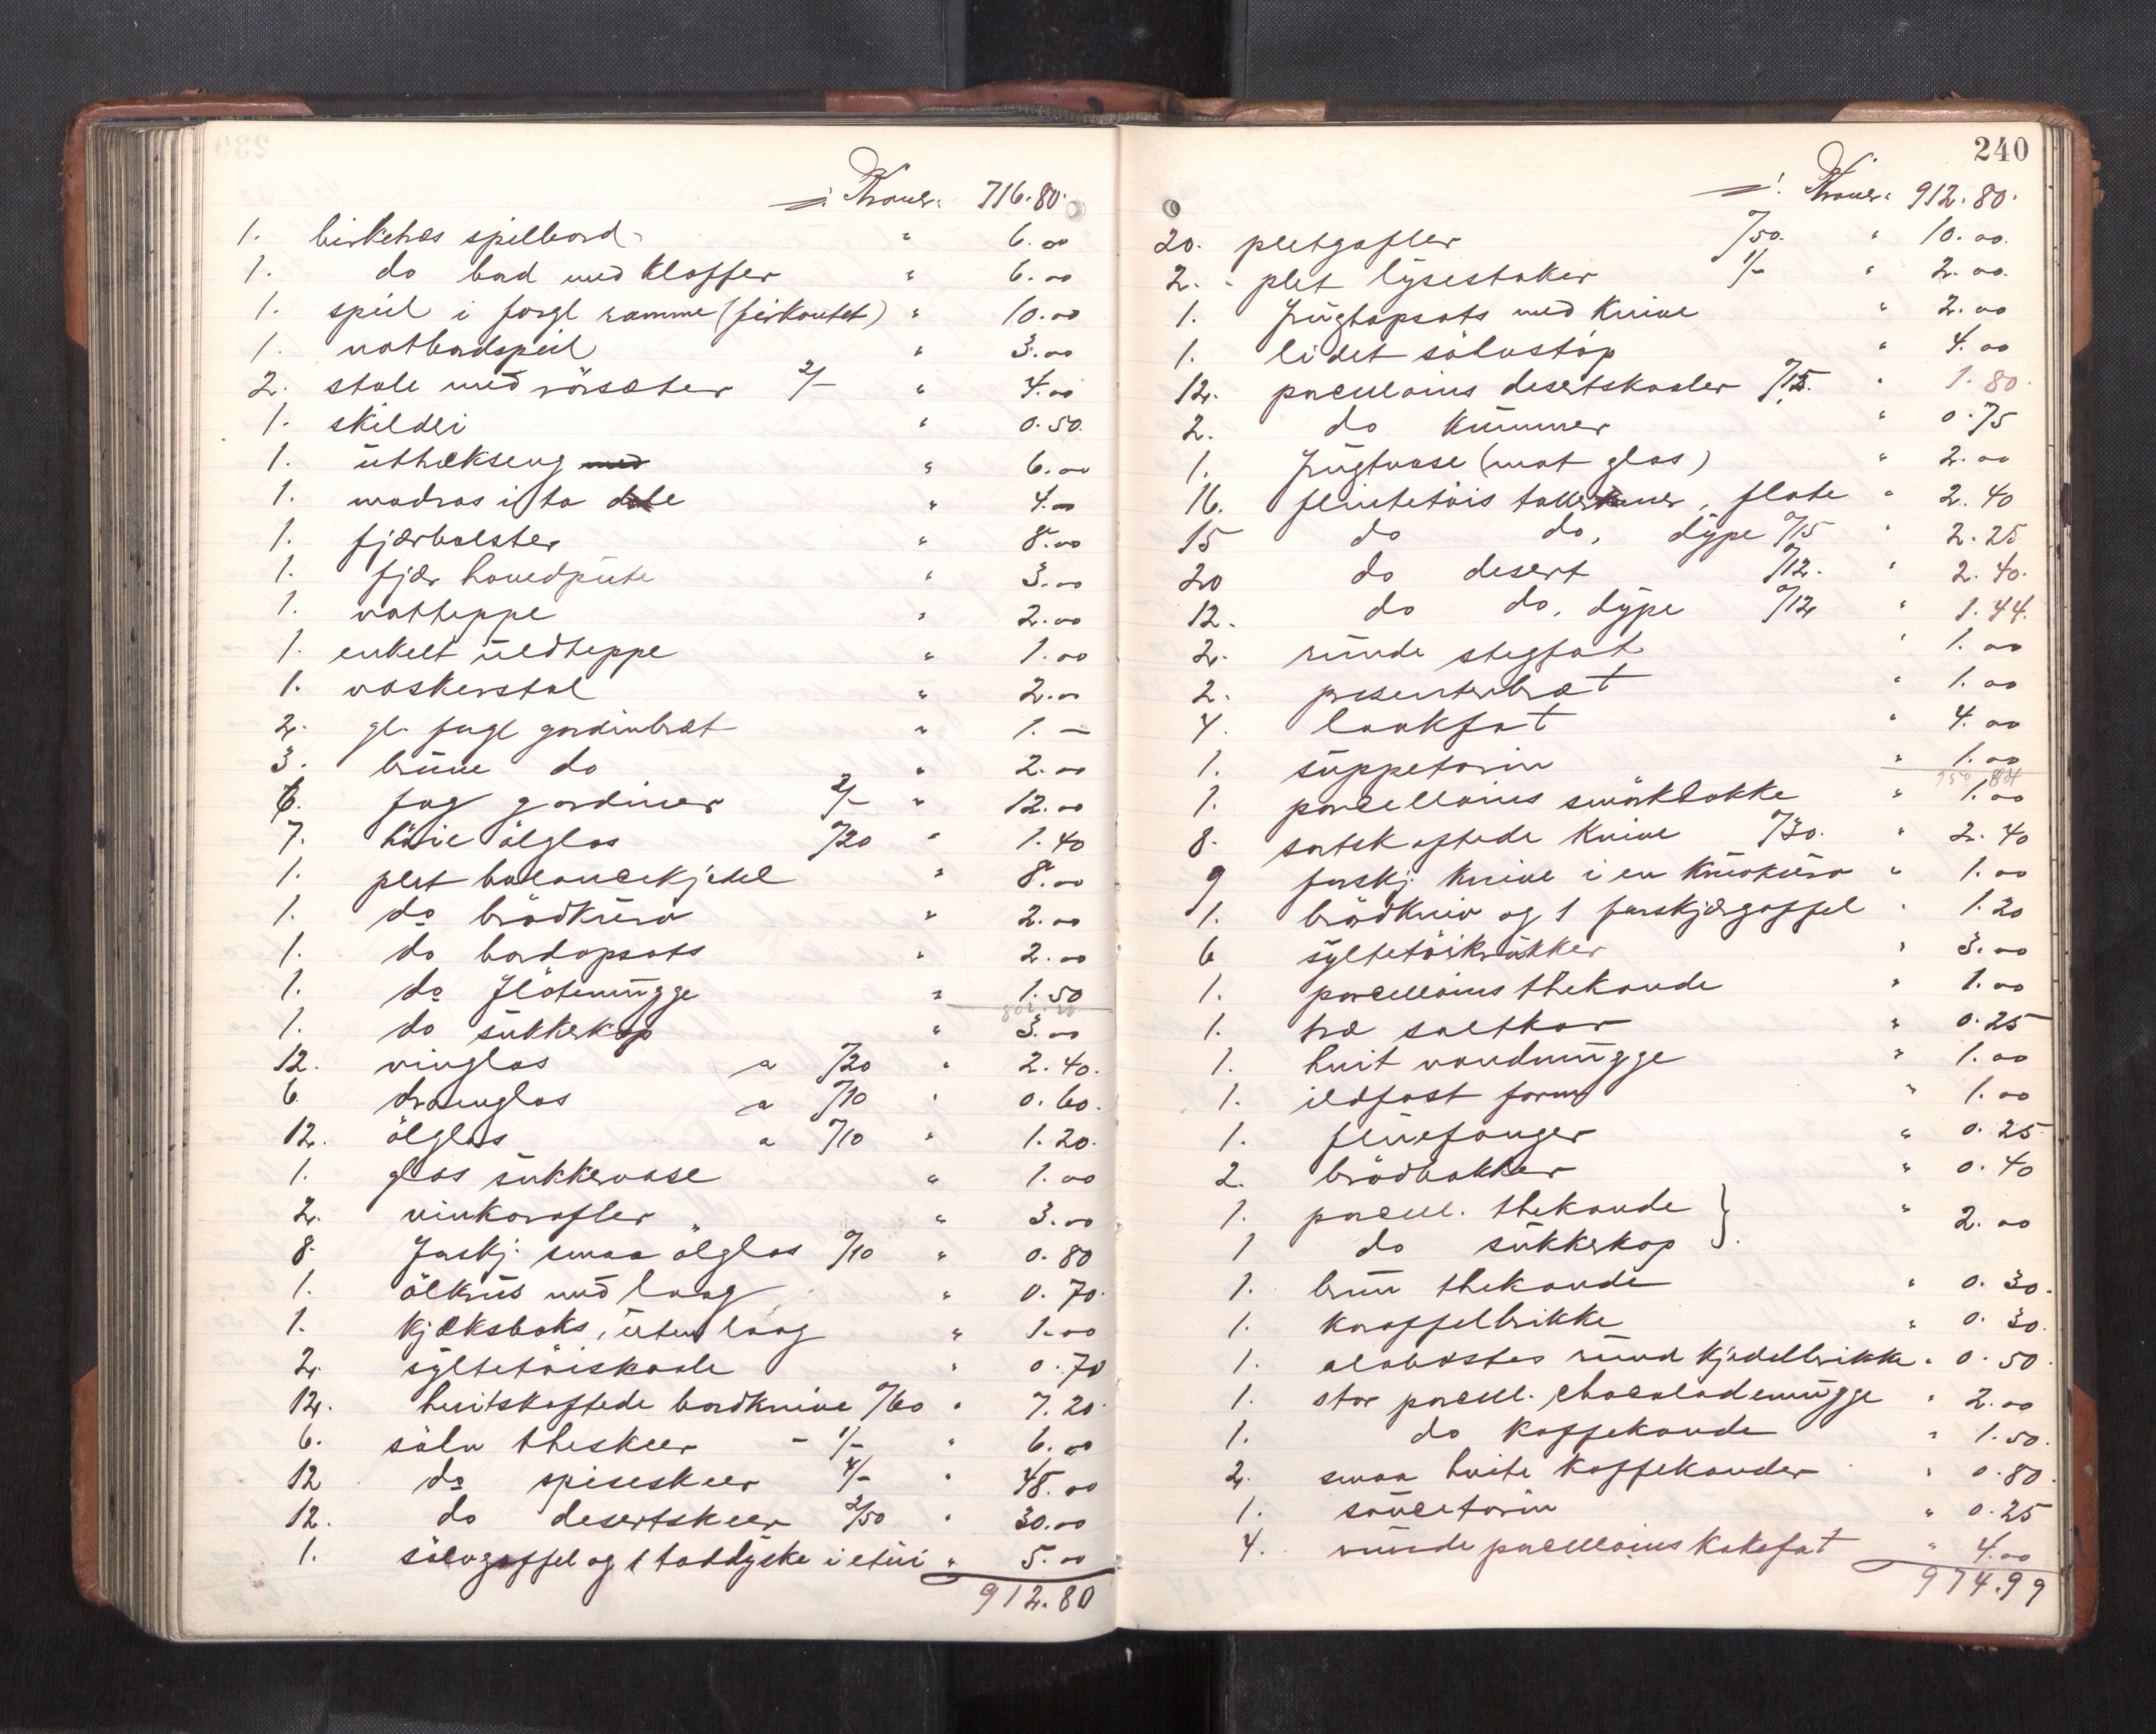 Kroner 716.80.
1. birketræs spilbord " 6.00
1. do bord med klaffer " 6.00
1. speil i forgl ramme (firkantet) " 10.00
1. natbordspeil " 3.00
2. stole med rörsæter 2/- " 4.00
1. skilderi " 0.50.
1. üttrækseng med " 6.00
1. madras i to dele " 4.00
1. fjærbolster " 8.00
1. fjær hovedpüte " 3.00
1. vatteppe " 2.00
1. enkelt üldteppe " 1.00
1. vaskerstol " 2.00
2. gl. forgl gardinbræt " 1. —
3. brüne do " 2.00
6. fag gardiner 2/- " 12.00
7. höie ölglas º/20 " 1.40
1. plet balancekjedel " 8.00
1. do brödkürv " 2.00
1. do bordopsats " 2.00
1. do flötemügge " 1.50
1. do sükkerkop " 3.00
12. vinglas a º/20 " 2.40.
6. dramglas a º/10 " 0.60.
12. ölglas a º/10 " 1.20.
1. glas sükkervase " 1.00
2. vinkarafler " 3.00
8. forskj. smaa ölglas º/10 " 0.80
1. ölkrüs med laag " 0.70.
1. kjæksboks, üten laag " 1.00
2. syltetöiskaale " 0.70
12. hvitskaftede bordknive º/60 " 7.20.
6. sölv theskeer - 1/- " 6.00
12 do spiseskeer 4/- " 48.00
12. do desertskeer 2/50 " 30.00
1. sölvgaffel og 1 toddyske i etüi " 5.00
912.80
240
Kroner 912.80.
20. pletgafler º/50. " 10.00.
2. plet lysestaker 1/- " 2.00.
1. früгtopsats med knive " 2.00
1. lidet sölvstöp " 4.00
12. porcellains desertskaaler º/15. " 1.80.
2. do kümmer " 0.75
1. frügtvase (mat glas) " 2.00
16. flintetöis tallerkener, flate " 2.40
15 do do, dype º/15 " 2.25
20 do desert º/12. " 2.40.
12. do do, dype º/12 " 1.44.
2. runde stegfat " 1.00
2. presenterbræt " 1.00
4. laakfat " 4.00
1. süppeterin " 1.00
1. porcellains smörklokke " 1.00
8. sortskaftede knive º/30. " 2.40
9 forskj. knive i en knivkürv " 1.00
1. brödkniv og 1 forskjærgaffel " 1.20
6 syltetöikrükker " 3.00
1. porcellains thekande " 1.00
1. træ saltkar " 0.25
1. hvit vandmügge " 1.00
1. ildfast form " 1.00
1. flüefanger " 0.25
2. brödbakker " 0.40
1. porcell. thekande } " 2.00
1 do sükkerkop }
1. brün thekande " 0.30.
1. karaffelbrikke " 0.30.
1. alabastes ründ kjedelbrikke " 0.50.
1. stor porcell. chocolademügge " 2.00
1. do kaffekande " 1.50.
2. smaa hvite kaffekander " 0.80.
1. saüceterin " 0.25
4. runde porcellains kakefat " 4.00
974.99